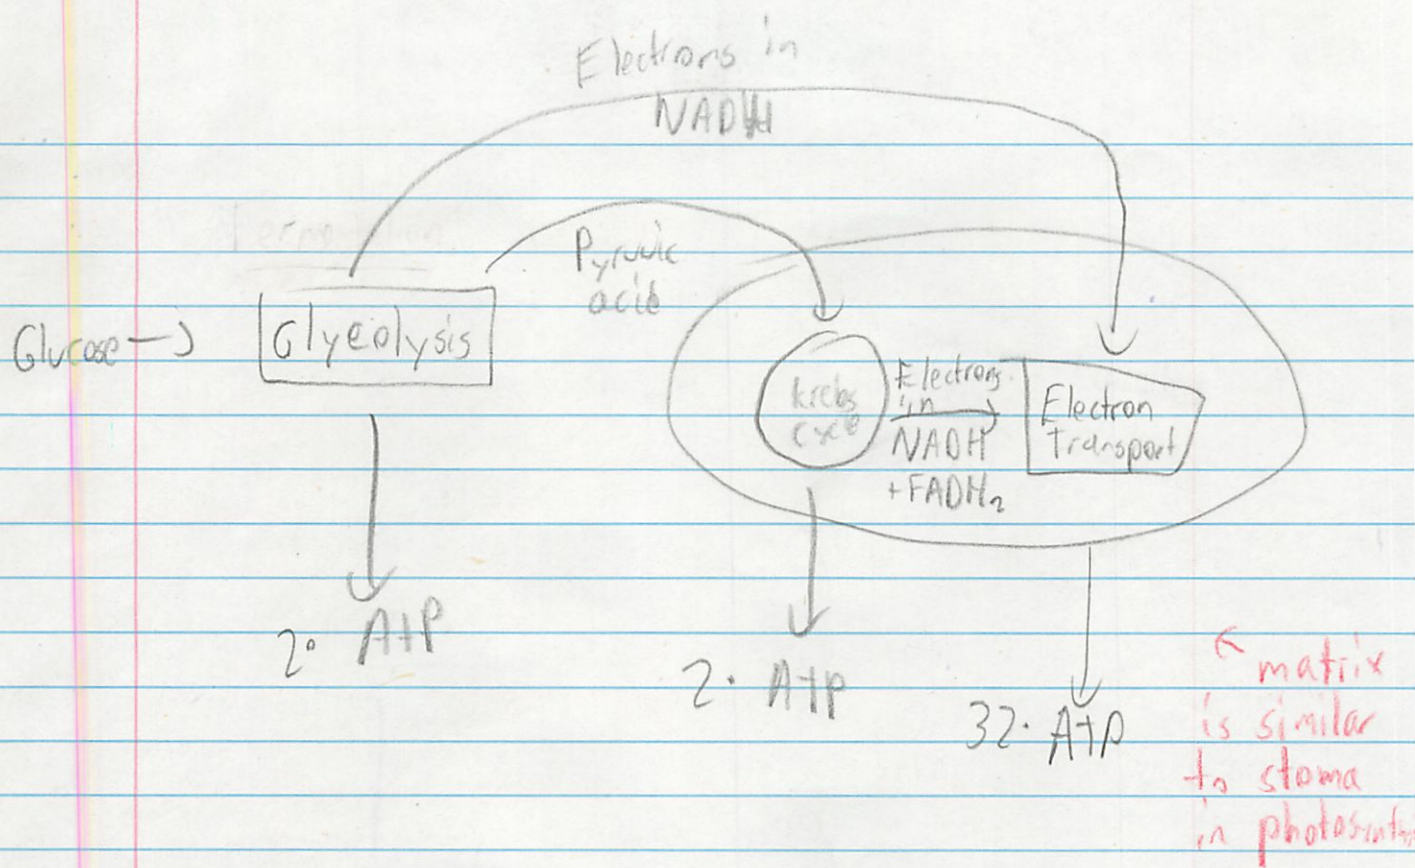 Electrons in
NADH
Pyruvic
acid
Glucose →
Glycolysis
Krebs
cycle
Electrons
in
NADH
+FADH₂
Electron
Transport
2• ATP
2• ATP
32• ATP
← matrix
is similar
to stoma
in